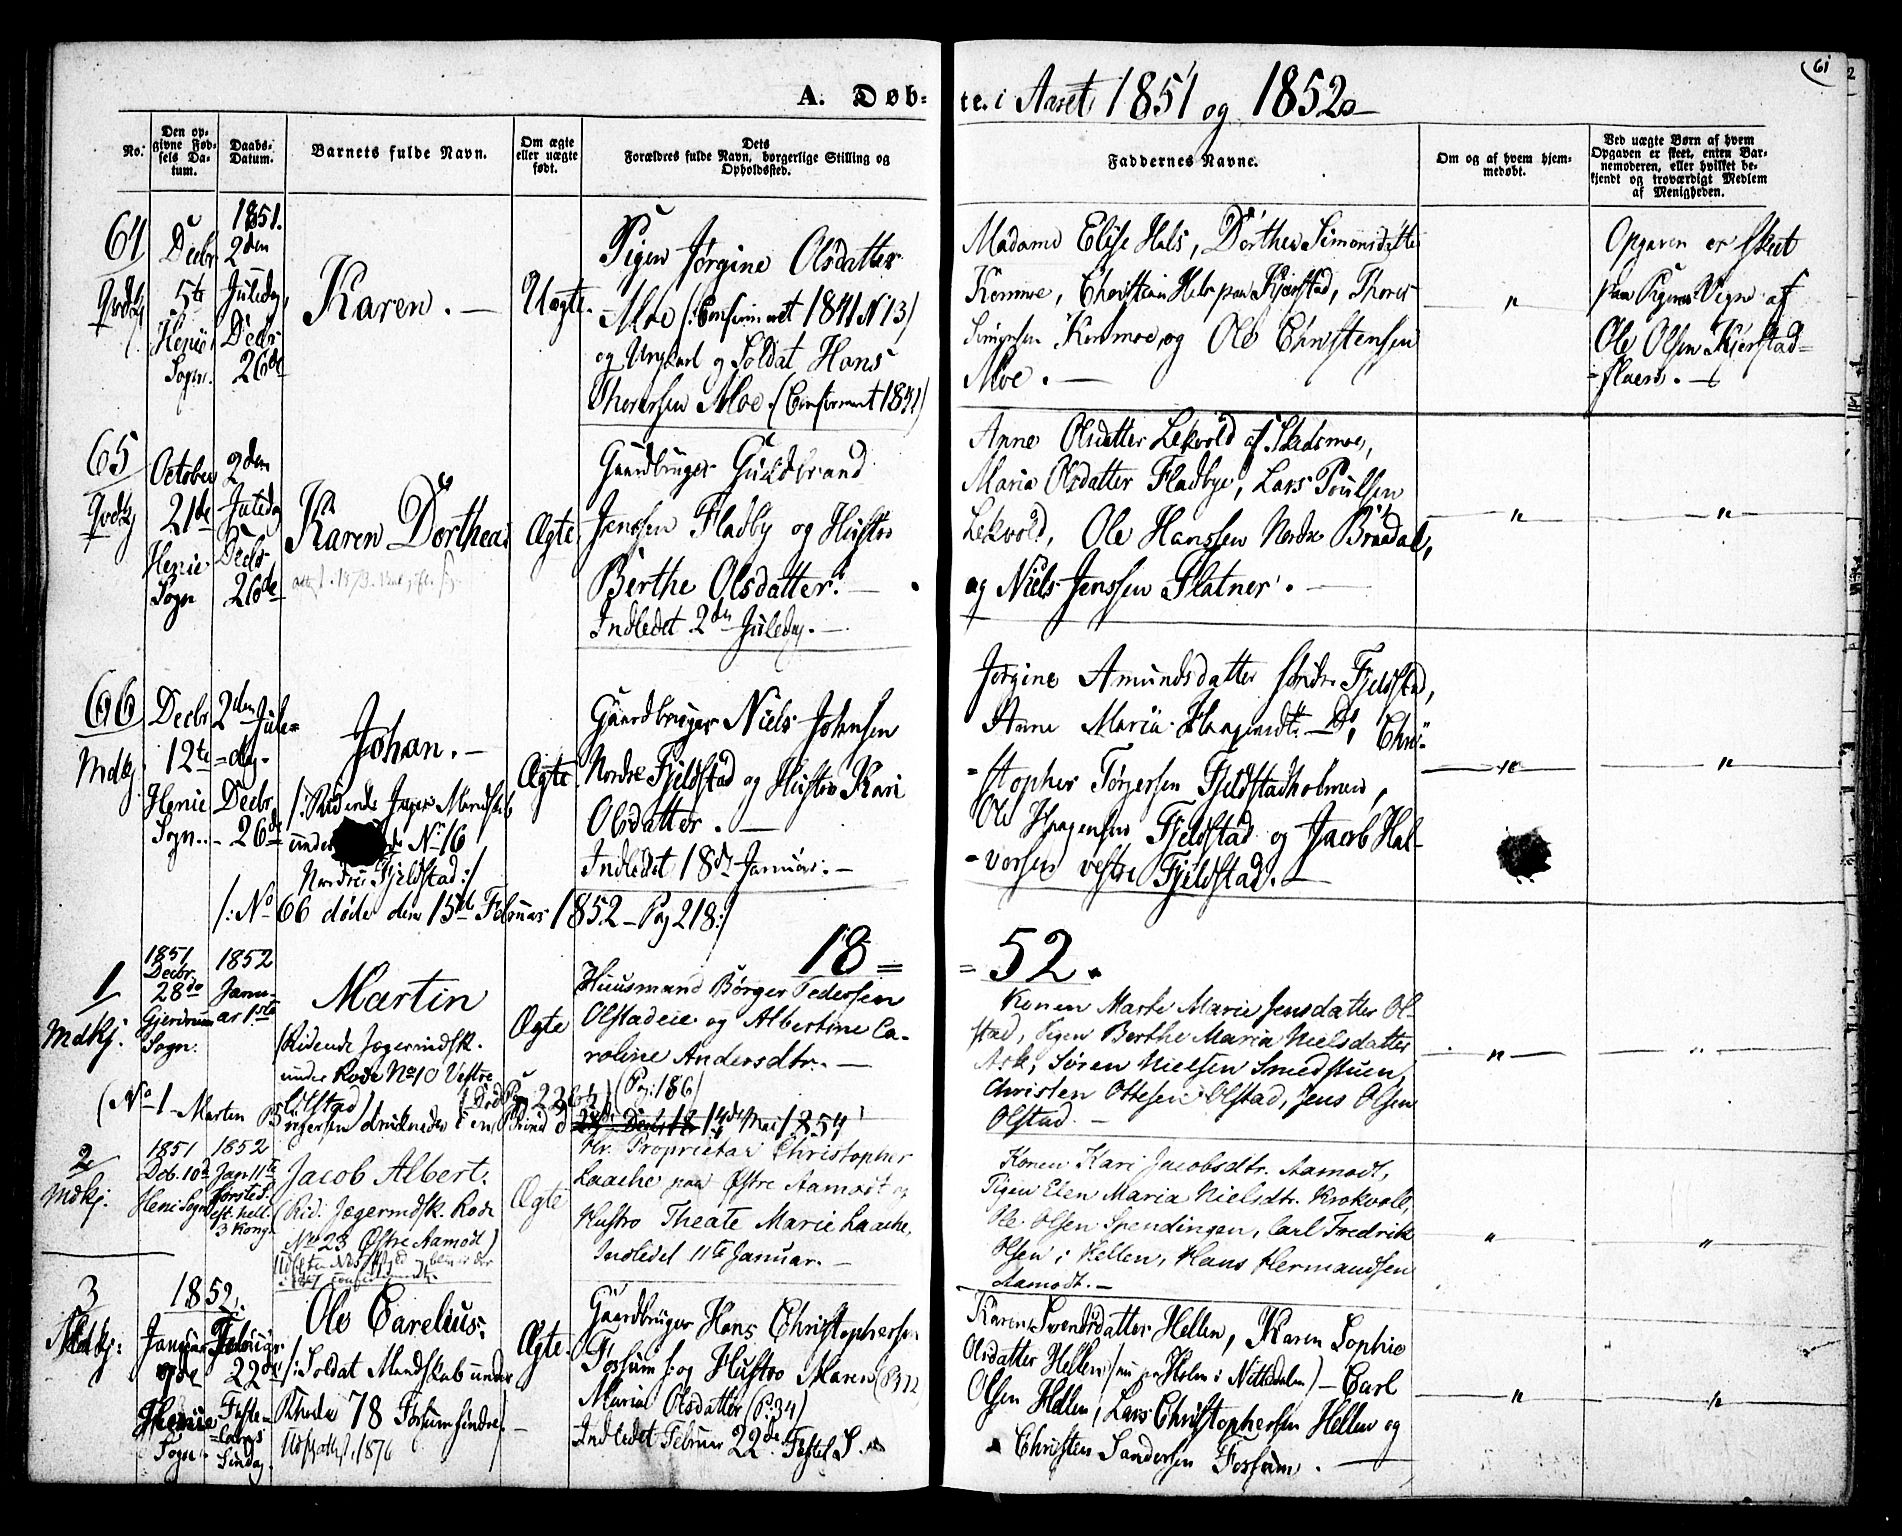 61
A. Døb-
te. i Aaret 1851 og 1852
No.
Den op-
givne Fød-
sels Da-
tum.
Daabs-
Datum.
Barnets fulde Navn.
Om ægte
eller uægte
født.
Dets
Forældres fulde Navn, borgerlige Stilling og
Opholdssted.
Faddernes Navne.
Om og af hvem hjem-
medøbt.
Ved uægte Børn af hvem
Opgaven er skeet, enten Bar-
nemoderen, eller hvilket be-
kjendt og troværdigt Medlem
af Menigheden.
64
Qvdkj
Decbr
5te
Henie
Sogn.
1851.
2den
Juledag,
Decbr
26de
Karen. —
Uægte.
Pigen Jørgine Olsdatter
Moe (: Confirmeret 1841 N 13)
og Ungkarl og Soldat Hans
Thorersen Moe (Confirmeret 1842)
Madame Elise Hals, Dorthea Simensdatter
Kommoe, Christian Hals paa Kjerstad, Thorer
Simensen Kommoe, og Ole Christensen
Moe. —
"
Opgaven er skeet
paa Pigens Vegn af
Ole Olsen Kjerstad-
-flaen. —
65
Qvdkj
October
21de
Henie
Sogn
2den
Juledag
Decbr
26de
Karen Dorthea.
Ægte.
Gaardbruger Guldbrand
Jenssen Fladby og Hustro
Berthe Olsdatter. —
Indledet 2den Juledag. —
Anne Olsdatter Lekvold af Stadsmoe,
Maria Olsdatter Fladbye, Lars Poulsen
Lekvold, Ole Hanssen Nordre Braadal,
og Niels Jenssen Platner. —
"
"
66
Mdkj.
Decbr
12te
Henie
Sogn.
2den Jule-
-dag-
Decbr
26de
Johan. —
/: Ridende Jæger Mandskab
under N 16
Nordre Fjeldstad :/
Ægte.
Gaardbruger Niels Johnsen
Nordre Fjeldstad og Hustro Kari
Olsdatter. —
Indledet 18de Januar. —
Jørgine Amundsdatter søndre Fjeldstad,
Anne Maria Haagensdtr. Do, Chri-
-stopher Torgersen Fjeldstadholmen,
Ole Haagensen Fjeldstad og Jacob Hal-
-vorsen vestre Fjeldstad. —
"
"
/: No 66 døde den 15de Februar 1852 – Pag 218 :/
18 =
= 52.
1
Mdkj.
1851
Decbr.
28de
Gjerdrum
Sogn.
1852
Janu-
ar 1ste
Martin
(Ridende Jægermdsk.
under Rode No 10 Vestre
Olstad)
Ægte
Huusmand Børger Pedersen
Olstadeie og Albertine Ca-
roline Andersdtr. —
(Pag: 186)
Konen Marthe Marie Jensdatter Ol-
stad, Pigen Berthe Maria Nielsdatter
Ask, Søren Nielsen Smedstuen,
Christen Ottesen Olstad, Jens Olsen
Olstad. —
"
"
(No 1 Martin Børgersen druknede i en Brønd d 14de Mai 1854
2
Mdkj.
1851
Deb. 10de
Heni Sogn
1852
Jan 11te
første S.
eft. hell.
3 Kong.
Jacob Albert.
(Rid. Jægermdsk. Rode
No 23 Østre Aamodt)
Ægte
Hr. Proprietair Christopher
Laache paa Østre Aamodt og
Hustro Theate Marie Laache,
Indledet 11te Januar. —
Konen Kari Jacobsdtr. Aamodt,
Pigen Elen Maria Nielsdtr. Krokvoll,
Ole Olsen Spendingen, Carl Fredrik
Olsen i Hellen, Hans Hermandsen
Aamodt. —
"
"
3
Mdkj:
1852.
Januar
9de
Henie
Sogn.
Februar
22de
Faste-
-lavns
Søndag.
Ole Carelius.
/: Soldat Mandskab under
Rode 78 Fossum søndre.
Udsk. attest 1876
Ægte.
Gaardbruger Hans Christophersen
Fossum og Hustro Maren
Maria Olsdatter (P. 34)
Indledet Februar 22de Fastel S.
Karen Svendsdatter Hellen, Karen Sophie
Olsdatter Hellen (nu paa Holm i Nittedalen) – Carl
Olsen Hellen, Lars Christophersen Hellen og
Christen Sandersen Fossum. —
"
"